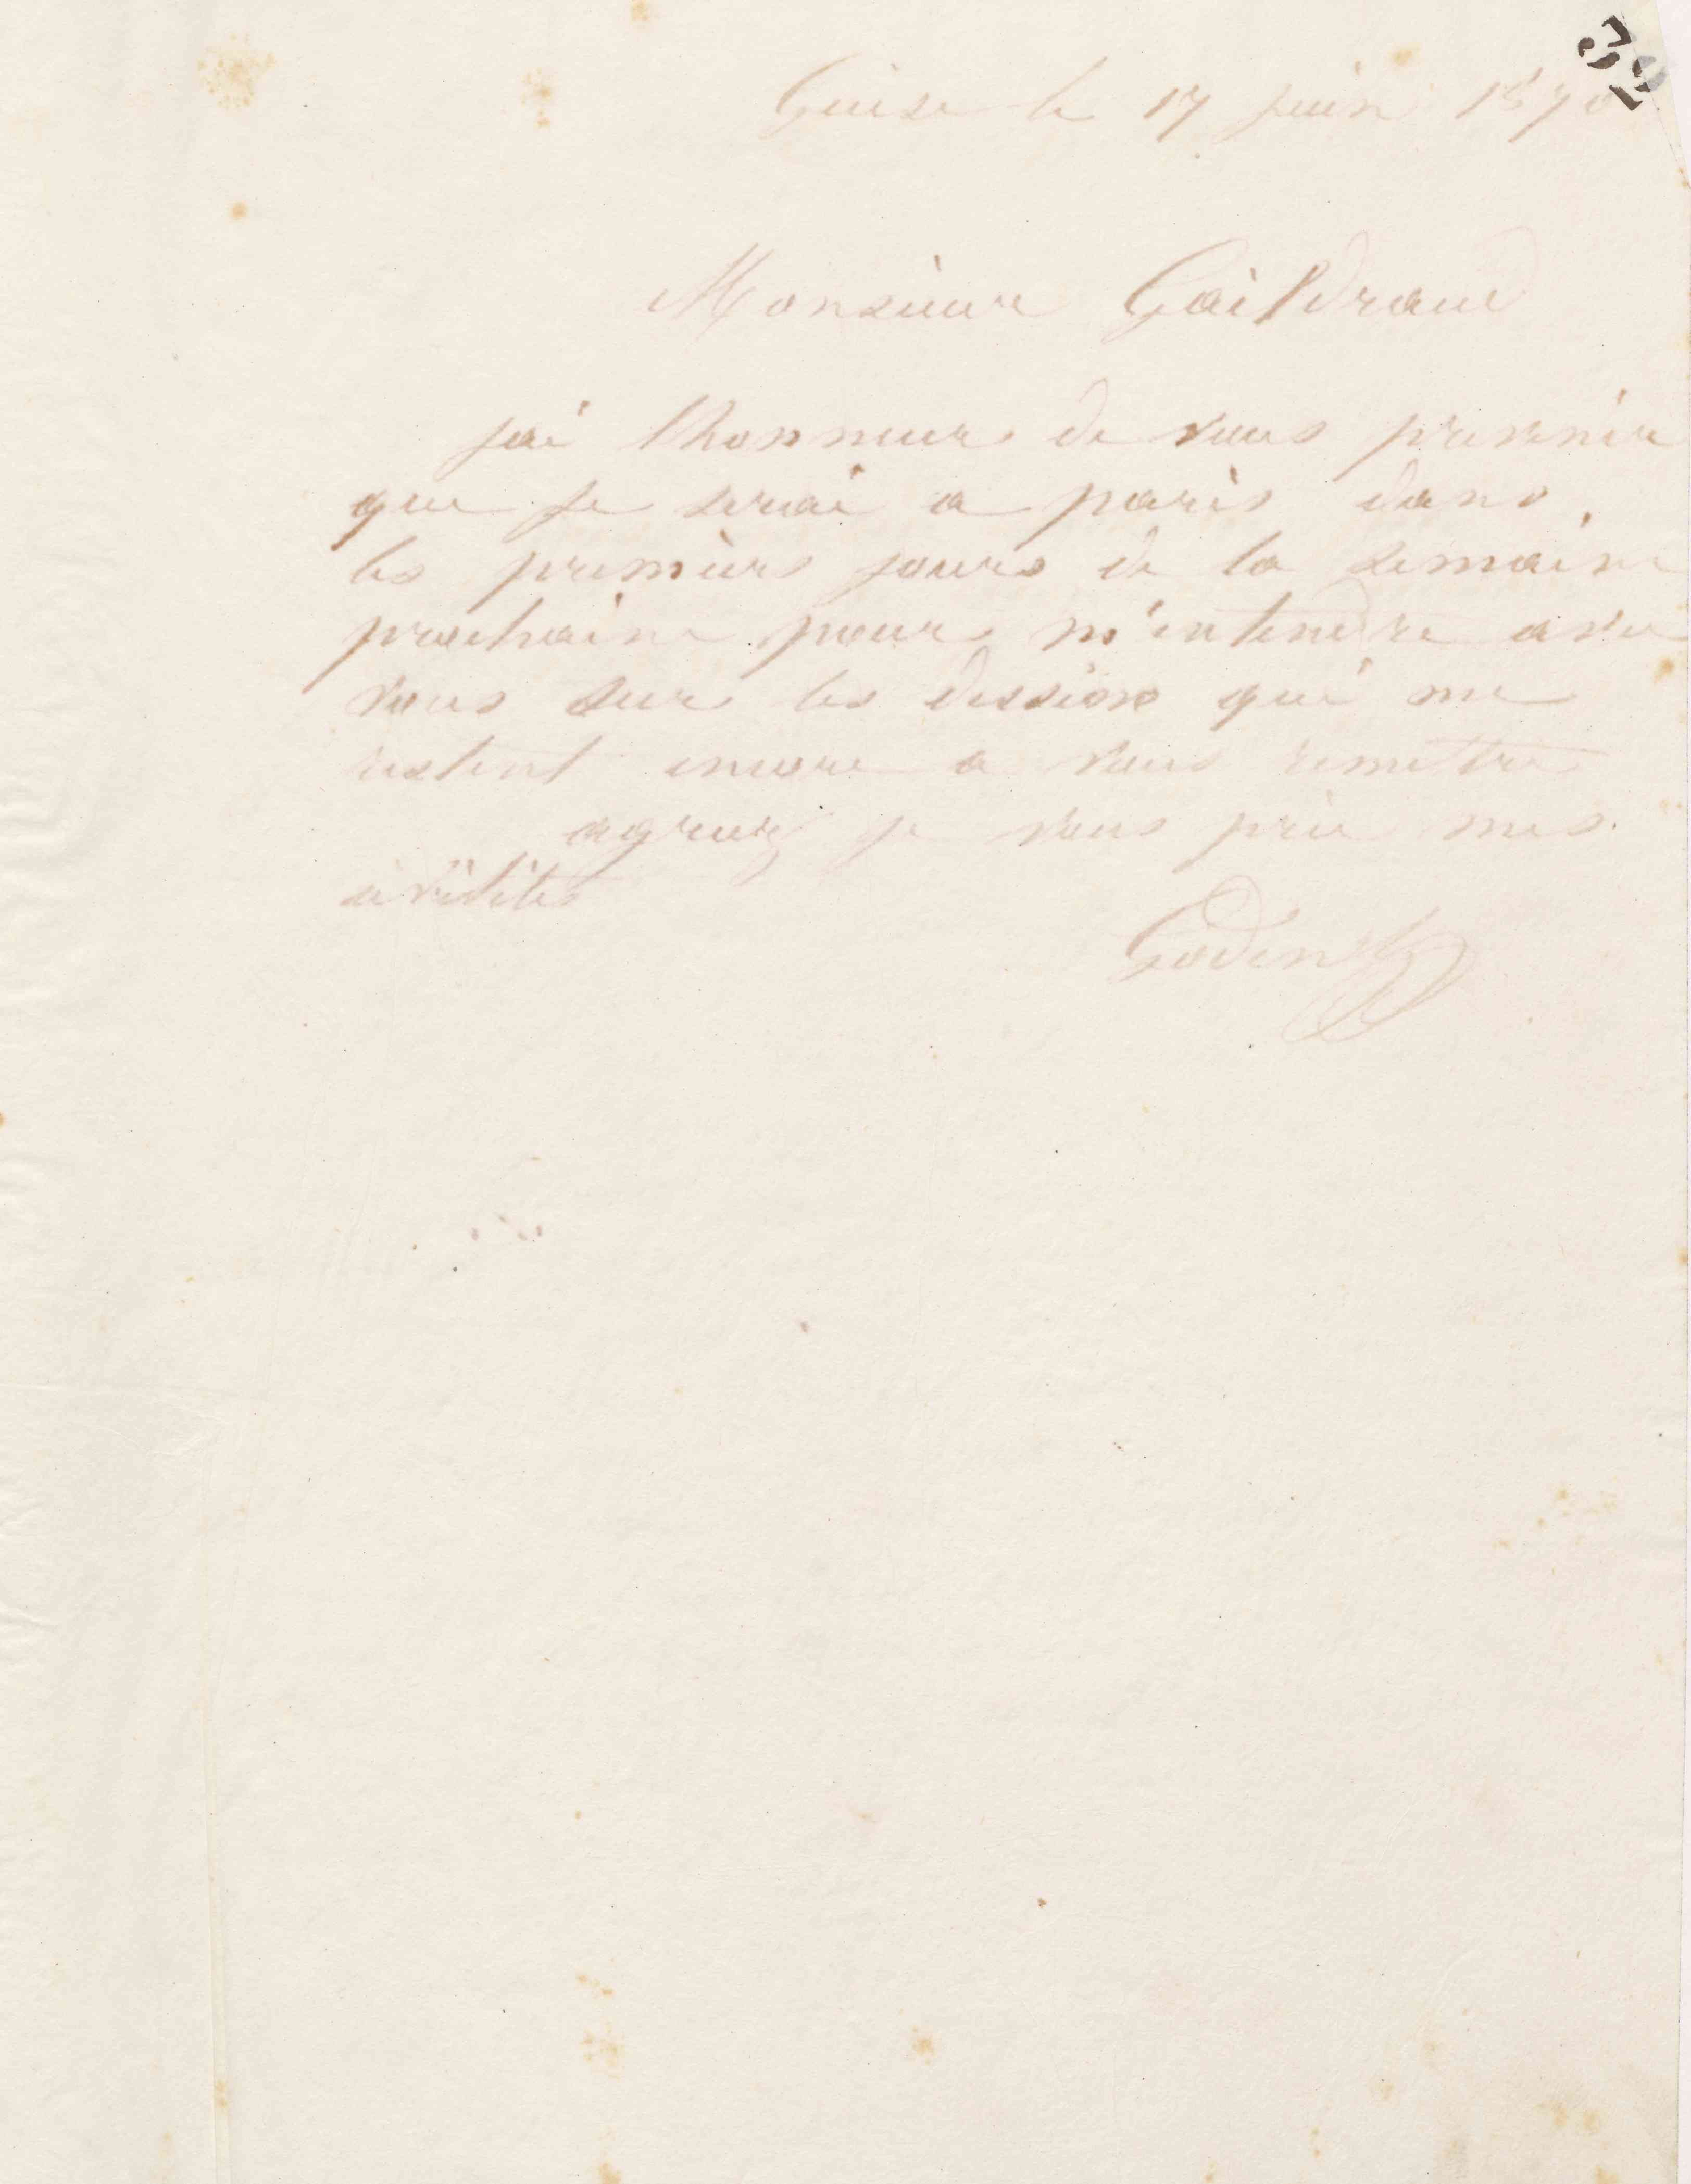 39
Guise le 17 juin 1870
Monsieur Gaildraud
jai lhonneur de vous prevenir
que je serai a paris dans
les premiers jours de la semaine
prochaine pour m'entendre avec
vous sur les dessins qui me
restent encore a vous remettre
agreez je vous prie mes
civilités
Godin